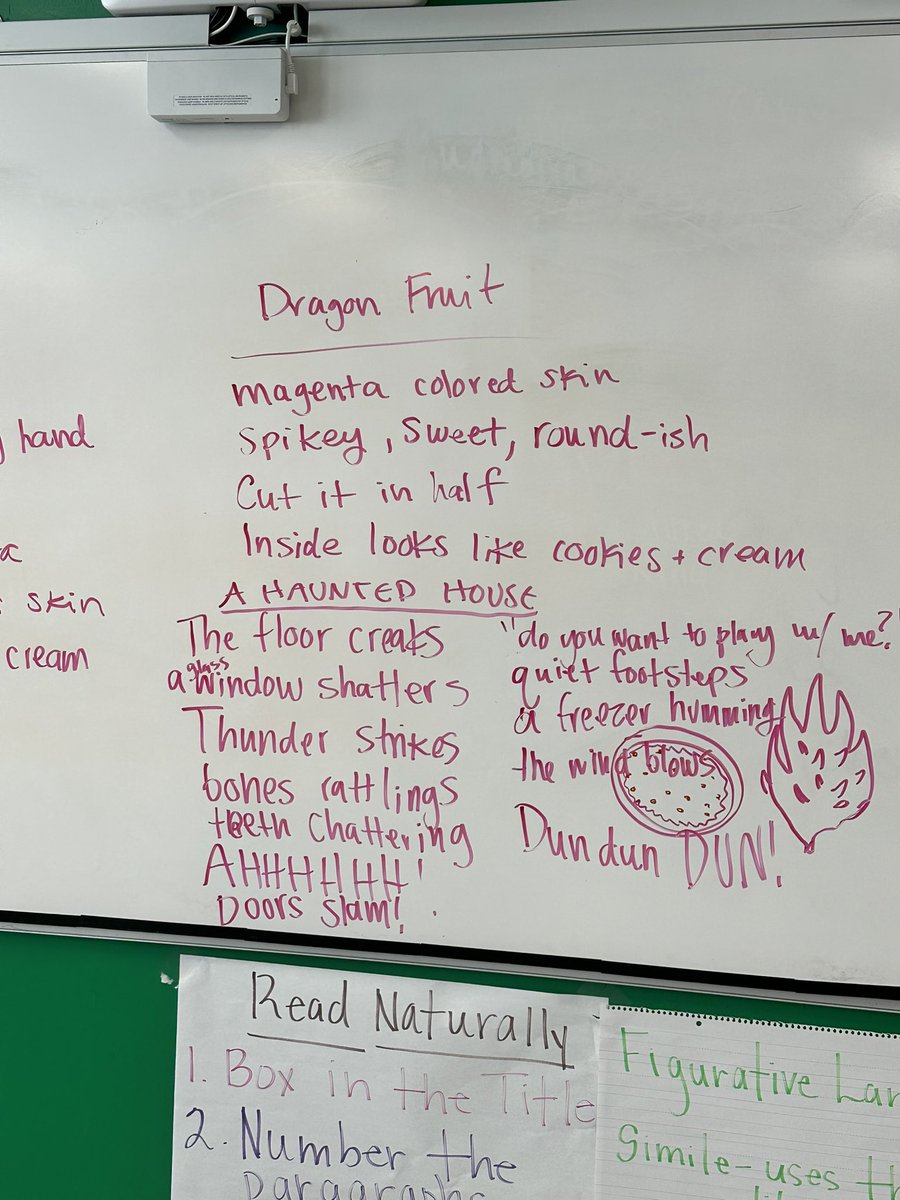 Dragon Fruit
magenta colored skin
Spikey, Sweet, round-ish
Cut it in half
Inside looks like cookies + cream
hand
skin
cream
A HAUNTED HOUSE
The floor creaks
a glass window shatters
Thunder strikes
bones rattlings
teeth Chattering
AHHHHHH!
Doors Slam!
"do you want to play w/ me?"
quiet footsteps
a freezer humming
the wind blows
Dun dun DUN!
Read Naturally
1. Box in the Title
2. Number the
paragraphs
Figurative Lan
Simile-uses th